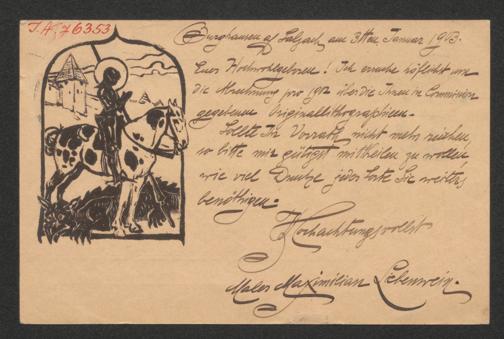 I.N. 76353
Burghausen a/ Salzach, am 3ten Januar 1913.
Euer Hochwohlgeboren! Ich ersuche höflichst um
die Abrechnung pro 1912 über die Ihnen in Commission
gegebenen Originallithographieen.-
Sollte Ihr Vorrath nicht mehr reichen,
so bitte mir gütigst mittheilen zu wollen,
wie viel Drucke jeder Sorte Sie weiters
benöthigen.-
Hochachtungsvollst
Maler Maximilian Liebenwein.-